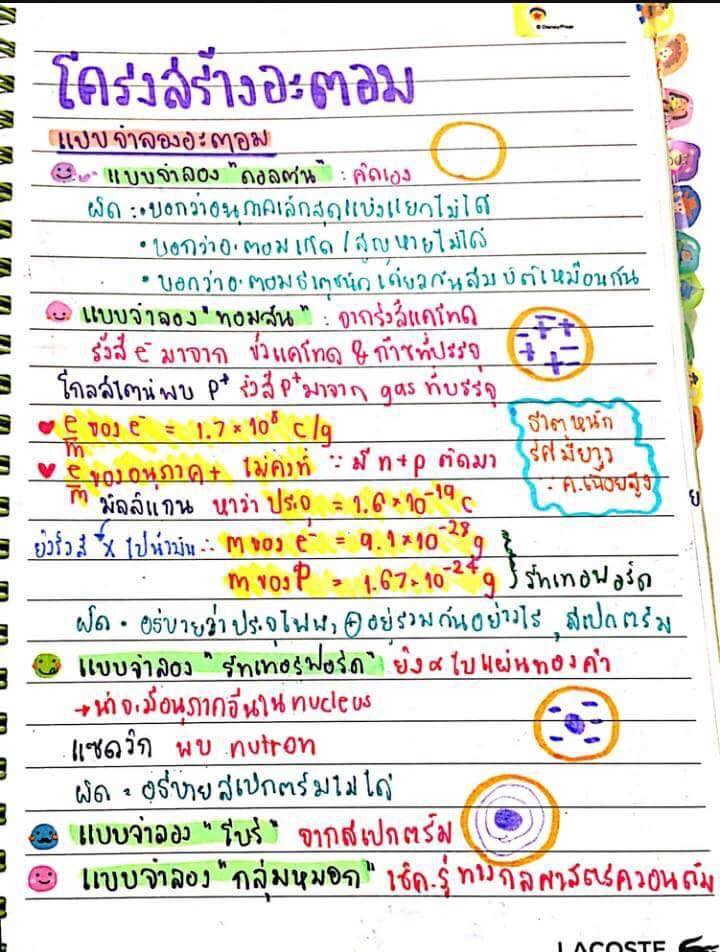 © Disney/Pixar
โครงสร้างอะตอม
แบบจำลองอะตอม
แบบจำลอง "ดอลตัน" : คิดเอง
ผิด : • บอกว่าอนุภาคเล็กสุดแบ่งแยกไม่ได้
• บอกว่าอะตอมเกิด / สูญหายไม่ได้
• บอกว่าอะตอมธาตุชนิดเดียวกันสมบัติเหมือนกัน
แบบจำลอง "ทอมสัน" : จากรังสีแคโทด
รังสี e⁻ มาจาก ขั้วแคโทด & ก๊าซที่บรรจุ
โกลสไตน์พบ P⁺ รังสี P⁺ มาจาก gas ที่บรรจุ
e/m ของ e⁻ = 1.7 × 10⁸ c/g
e/m ของอนุภาค + ไม่คงที่ ∵ มี n+p ต่างกัน
ธาตุหนัก
รัศมี
มิลลิแกน หาว่า ประจุ = 1.6 × 10⁻¹⁹ c
ยิงรังสี x ไปน้ำมัน ∴ m ของ e⁻ = 9.1 × 10⁻²⁸ g
m ของ P = 1.67 × 10⁻²⁴ g } รัทเทอฟอร์ด
ผิด = อธิบายว่าประจุไฟฟ้า ⊕ อยู่รวมกันอย่างไร , สเปกตรัม
แบบจำลอง "รัทเทอร์ฟอร์ด" ยิง ∝ ไปแผ่นทองคำ
→ น่าจะมีอนุภาคอื่นใน nucleus
แชดวิก พบ nutron
ผิด = อธิบายสเปกตรัมไม่ได้
แบบจำลอง "โบร์" จากสเปกตรัม
แบบจำลอง "กลุ่มหมอก" ใช้ค.รู้ทางกลศาสตร์ควอนตัม
LACOSTE